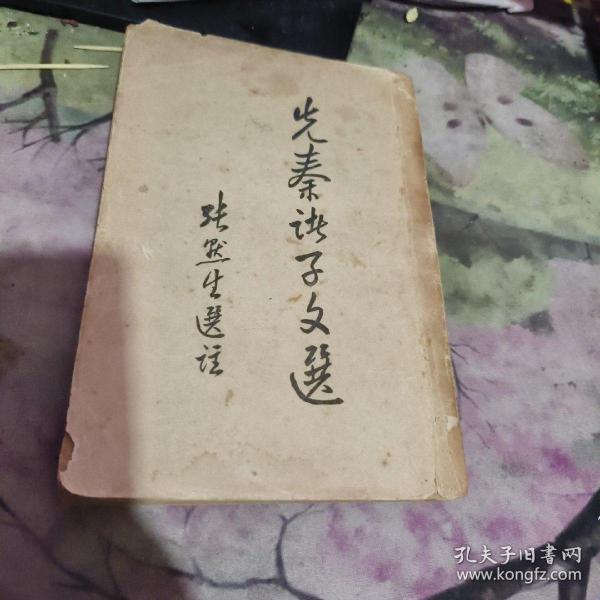 先秦诸子文選
張默生選註
孔夫子旧書网
www.kongfz.com